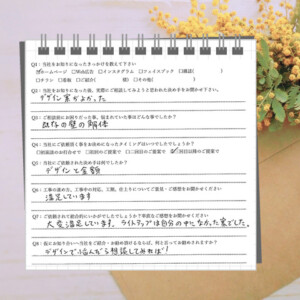 Q1：当社をお知りになったきっかけを教えて下さい
☑ホームページ □Web広告 □インスタグラム □フェイスブック □雑誌( )
□チラシ □看板 □紹介( 様) □その他( )
Q2：当社をお知りになった後、実際に相談してみようと思われた決め手をお聞かせ下さい。
デザイン案がよかった
Q3：ご相談前にお困りだった事、悩まれていた事はどんな事でしたか？
既存の壁の解体
Q4：当社にご依頼頂く事をお決めになったタイミングはいつでしたでしょうか？
□初回のお打合せで □初回のご提案で □二回目のご提案で ☑三回目以降のご提案で
Q5：当社にご依頼された決め手は何でしたか？
デザインと金額
Q6：工事の進め方、工事中の対応、工期、仕上りについてご意見・ご感想をお聞かせください
満足しています
Q7：ご依頼されて総合的にいかがでしたでしょうか？率直なご感想をお聞かせください
大変満足しています。ライトアップは自分の中になかった案でした。
Q8：最後にお知り合いへ当社をご紹介・お勧め頂けるならば、何と言ってお勧めされますか？
デザインで悩んだら相談してみれば！